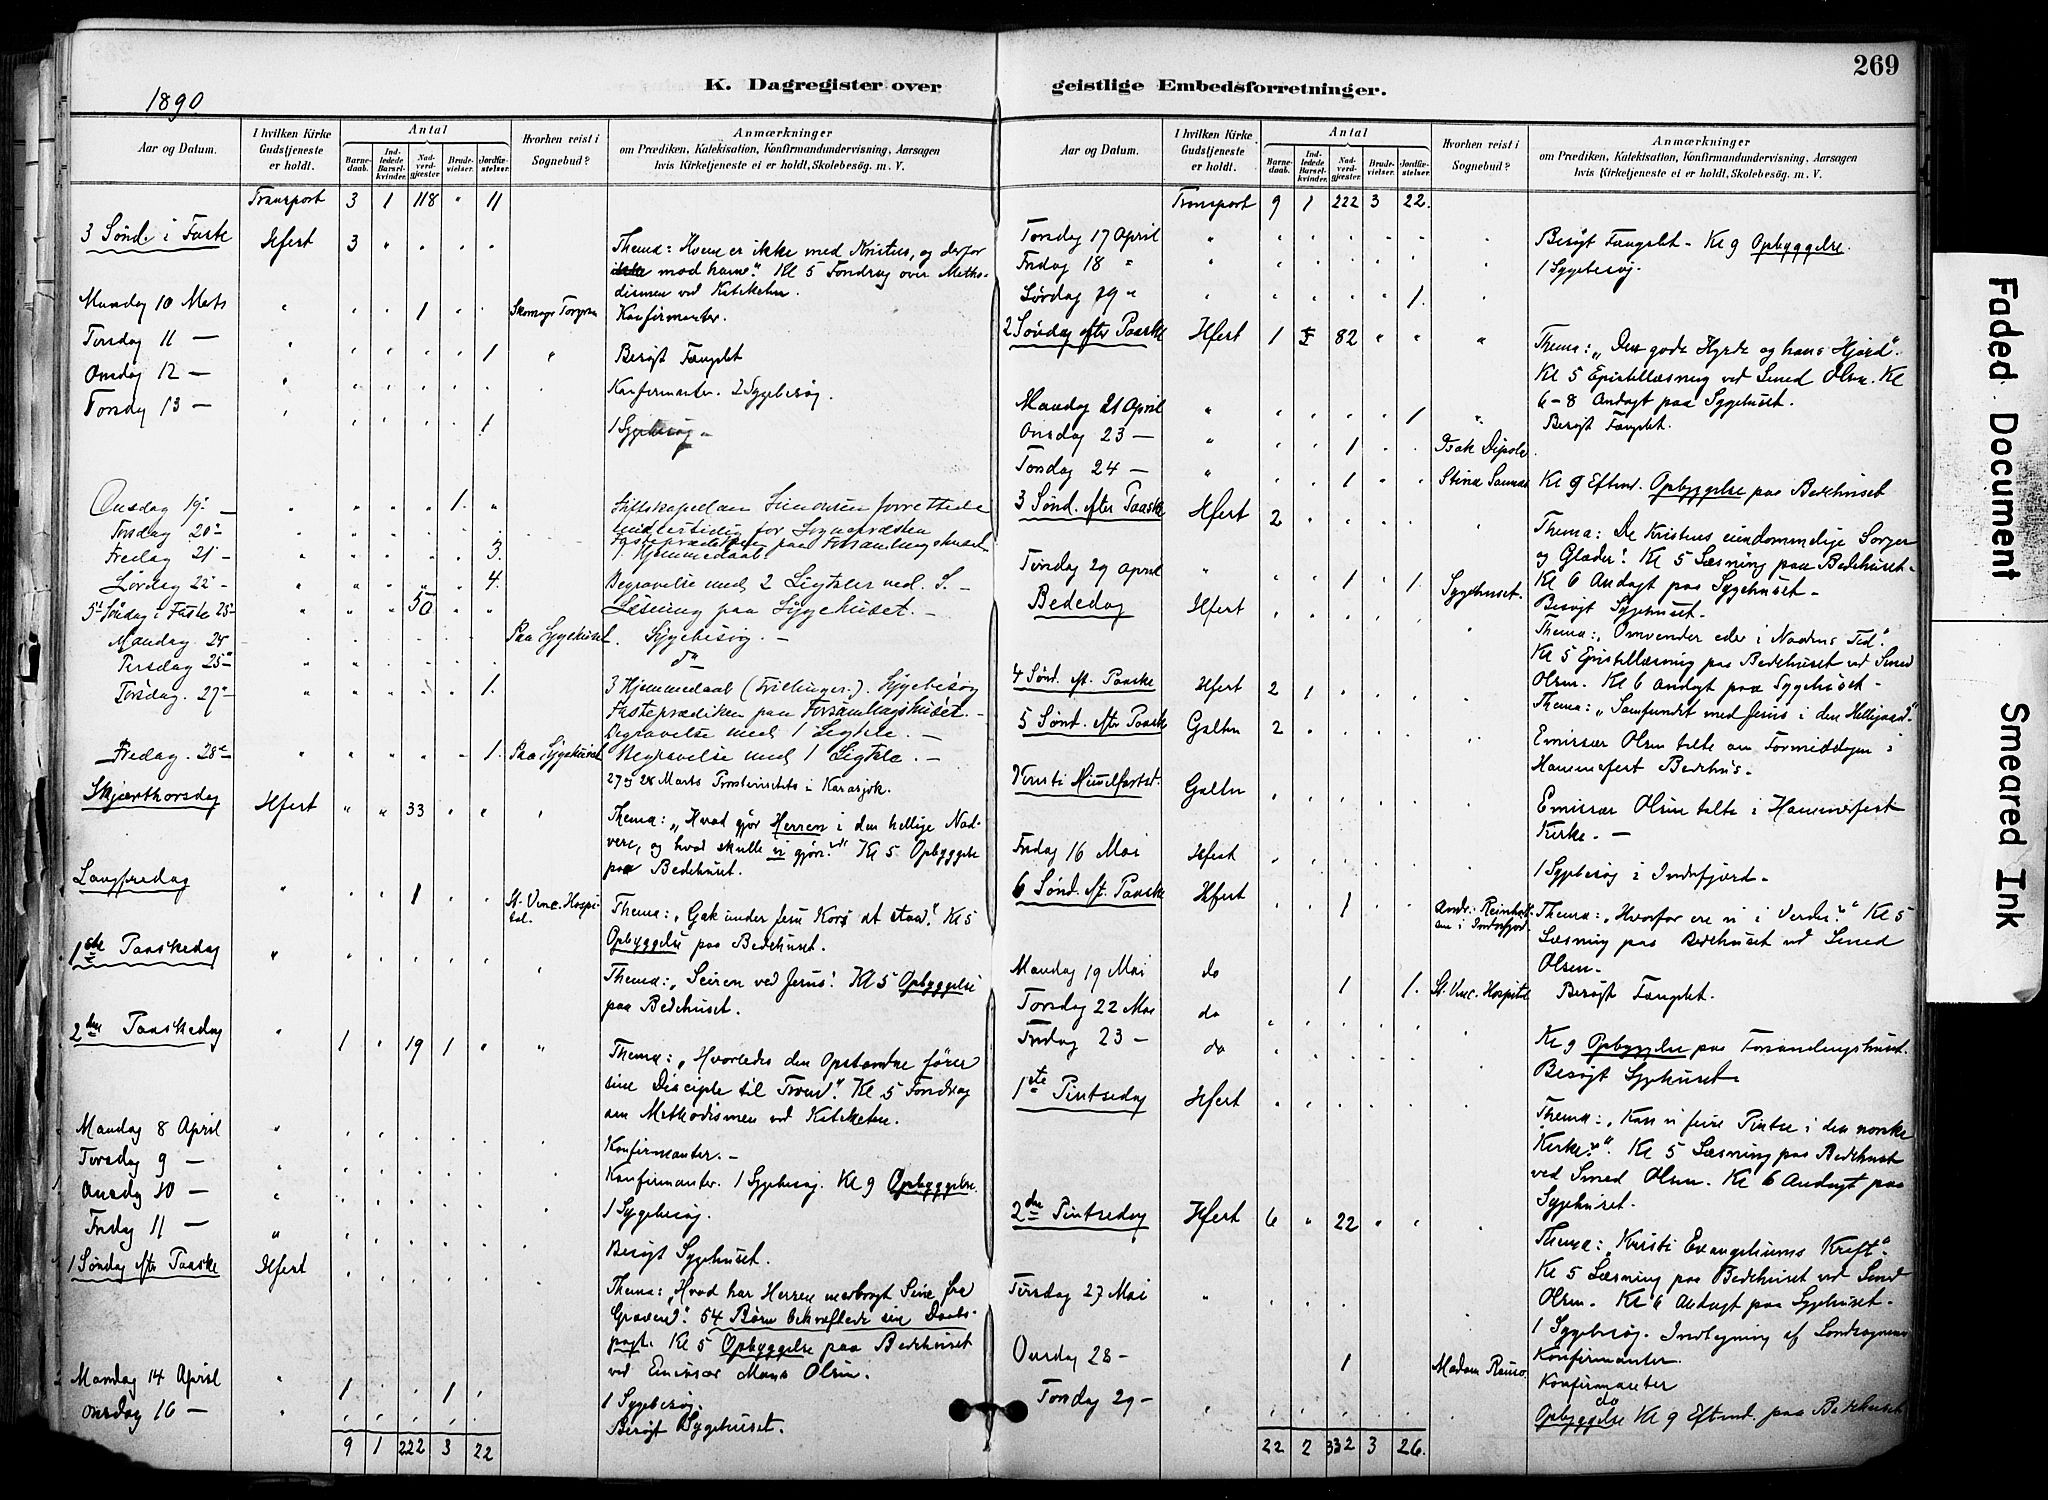 269
K. Dagregister over geistlige Embedsforretninger.
1890.
Aar og Datum.
I hvilken Kirke Gudstjeneste er holdt.
Antal
Barnedaab.
Indledede Barselkvinder.
Nadverdgjæster
Brudevielser.
Jordfæstelser.
Hvorhen reist i Sognebud?
Anmærkninger
om Prædiken, Katekisation, Konfirmandundervisning, Aarsagen
hvis Kirketjeneste ei er holdt, Skolebesøg. m. V.
Transport 3 1 118 " 11
3 Sønd. i Faste Hfert 3 " " " " Thema: Hvem er ikke med Kristus, og derfor
mod ham". Kl 5 Foredrag over Metho-
dismen ved Kateketen.
Mandag 10 Mets " 1 Konfirmanter.
Tirsdag 11 — " 1 Besøgt Fængslet
Onsdag 12 — " Konfirmanter. 2 Sygebesøg.
Torsdag 13 — " 1 1 Sygebesøg
Onsdag 19 — 1. Stiftskapellan Simonsen forrettede
midlertidig for Sognepræsten
Torsdag 20 — Fasteprædiken paa Forsamlingshuset
Fredag 21 — 3. 1 Hjemmedaab
Lørdag 22 — 4. Begravelse med 2 Ligtaler ved S. —
5t Søndag i Faste 23 — 50 Læsning paa Sygehuset. —
Mandag 24 Paa Sygehuset. Sygebesøg. —
Tirsdag 25 — do
Torsdag 27 — 1. 3 Hjemmedaab (Trillinger.). Sygebesøg
Fasteprædiken paa Forsamlingshuset. —
Begravelse med 1 Ligtale. —
Fredag 28 — 1. Paa Sygehuset Begravelse med 1 Ligtale. —
27 og 28 Marts Provstevisitats i Karasjok.
Skjærthorsdag Hfert " " 33 " " Thema: „Hvad gjør Herren i den hellige Nad-
vere, og hvad skulle vi gjøre?" Kl 5 Opbyggelse
paa Bedehuset.
Langfredag " 1 St. Vinc. Hospi-
tal. Thema: „Gak under Jesu Kors at staa". Kl 5
Opbyggelse paa Bedehuset.
1ste Paaskedag " Thema: „Seiren ved Jesus! Kl 5 Opbyggelse
paa Bedehuset.
2den Paaskedag " 1 " 19 1 " " Thema: „Hvorledes den Opstandne fører
sine Disciple til Troen". Kl 5 Foredrag
om Methodismen ved Kateketen.
Mandag 8 April " Konfirmanter. —
Tirsdag 9 — Konfirmanter. 1 Sygebesøg. Kl 9 Opbyggelse.
Onsdag 10 — " 1 Sygebesøg.
Fredag 11 — " Besøgt Sygehuset.
1 Søndag efter Paaske Hfert Thema: „Hvad har Herren medbragt Sine fra
Graven?" 54 Børn bekræftede sin Daabs-
pagt. Kl 5 Opbyggelse paa Bedehuset
ved Emissær Mons Olsen.
Mandag 14 April " 1 1 1 Sygebesøg.
Onsdag 16 — " Besøgt Sygehuset.
9 1 222 3 22
Aar og Datum.
I hvilken Kirke Gudstjeneste er holdt.
Antal
Barnedaab.
Indledede Barselkvinder.
Nadverdgjæster
Brudevielser.
Jordfæstelser.
Hvorhen reist i Sognebud?
Anmærkninger
om Prædiken, Katekisation, Konfirmandundervisning, Aarsagen
hvis Kirketjeneste ei er holdt, Skolebesøg. m. V.
Transport 9 1 222 3 22.
Torsdag 17 April " Besøgt Fængslet — Kl 9 Opbyggelse.
Fredag 18 " " 1 Sygebesøg.
Lørdag 19 " " 1.
2 Søndag efter Paaske Hfert 1 82 " " " Thema: „Den gode Hyrde og hans Hjord".
Kl 5 Epistellæsning ved Smed Olsen. Kl
6-8 Andagt paa Sygehuset.
Mandag 21 April " 1 " Besøgt Fængslet.
Onsdag 23 — " 1 Isak
Torsdag 24 — " 1 Stina Kl 9 Eftmd. Opbyggelse paa Bedehuset
3 Sønd. efter Paaske Hfert 2 Thema: De Kristnes eiendommelige Sorger
og Glæder! Kl 5 Læsning paa Bedehuset.
Kl 6 Andagt paa Sygehuset —
Tirsdag 29 April " 1 1. Sygehuset. Besøgt Sygehuset.
Bededag Hfert Thema: „Omvender eder i Naadens Tid".
Kl 5 Epistellæsning paa Bedehuset ved Smed
Olsen. Kl 6 Andagt paa Sygehuset —
4 Sønd. eft. Paaske Hfert 2 1 Thema: „Samfundet med Jesus i den Helligaand"
5 Sønd. efter Paaske Galten 2 Emissær Olsen talte om Formiddagen i
Hammerfest Bedehus —
Kristi Himmelfartsd. Galten Emissær Olsen talte i Hammerfest
Kirke. —
Fredag 16 Mai Hfert 1 Sygebesøg i Indrefjord —
6 Sønd. eft. Paaske Hfert 1 Andr. Thema: „Hvorfor ere vi i Verden?" Kl 5
Læsning paa Bedehuset ved Smed
Olsen —
Mandag 19 Mai do 1 1. St. Vinc. Hospital Besøgt Fængslet.
Torsdag 22 Mai do Kl 9 Opbyggelse paa Forsamlingshuset.
Fredag 23 — do Besøgt Sygehuset —
1ste Pintsedag Hfert Thema: „Kan vi feire Pintse i den norske
Kirke?". Kl 5 Læsning paa Bedehuset
ved Smed Olsen. Kl 6 Andagt paa
Sygehuset.
2den Pintsedag Hfert 6 " 22 " Thema: „Kristi Evangeliums Kraft".
Kl 5 Læsning paa Bedehuset ved Smed
Olsen. Kl 6 Andagt paa Sygehuset.
Tirsdag 27 Mai " 1 Sygebesøg. Indtegning af Landsognets
Konfirmanter.
Onsdag 28 — 1 Madam Konfirmanter
Torsdag 29 — do
Opbyggelse Kl 9 Eftmd. paa Bedehuset
22 2 332 3 26.
Faded Document
Smeared Ink